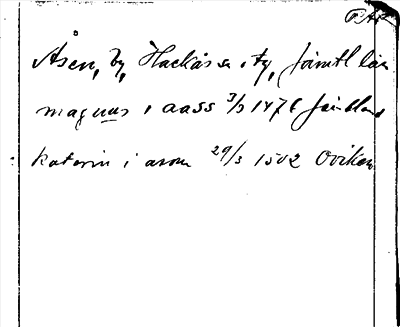 PAR
Åsen, by, Hackås sn o ty, Jämtl län
magnus i aass 3/3 1476 Jämtland
katerin i asom 29/3 1502 Oviken